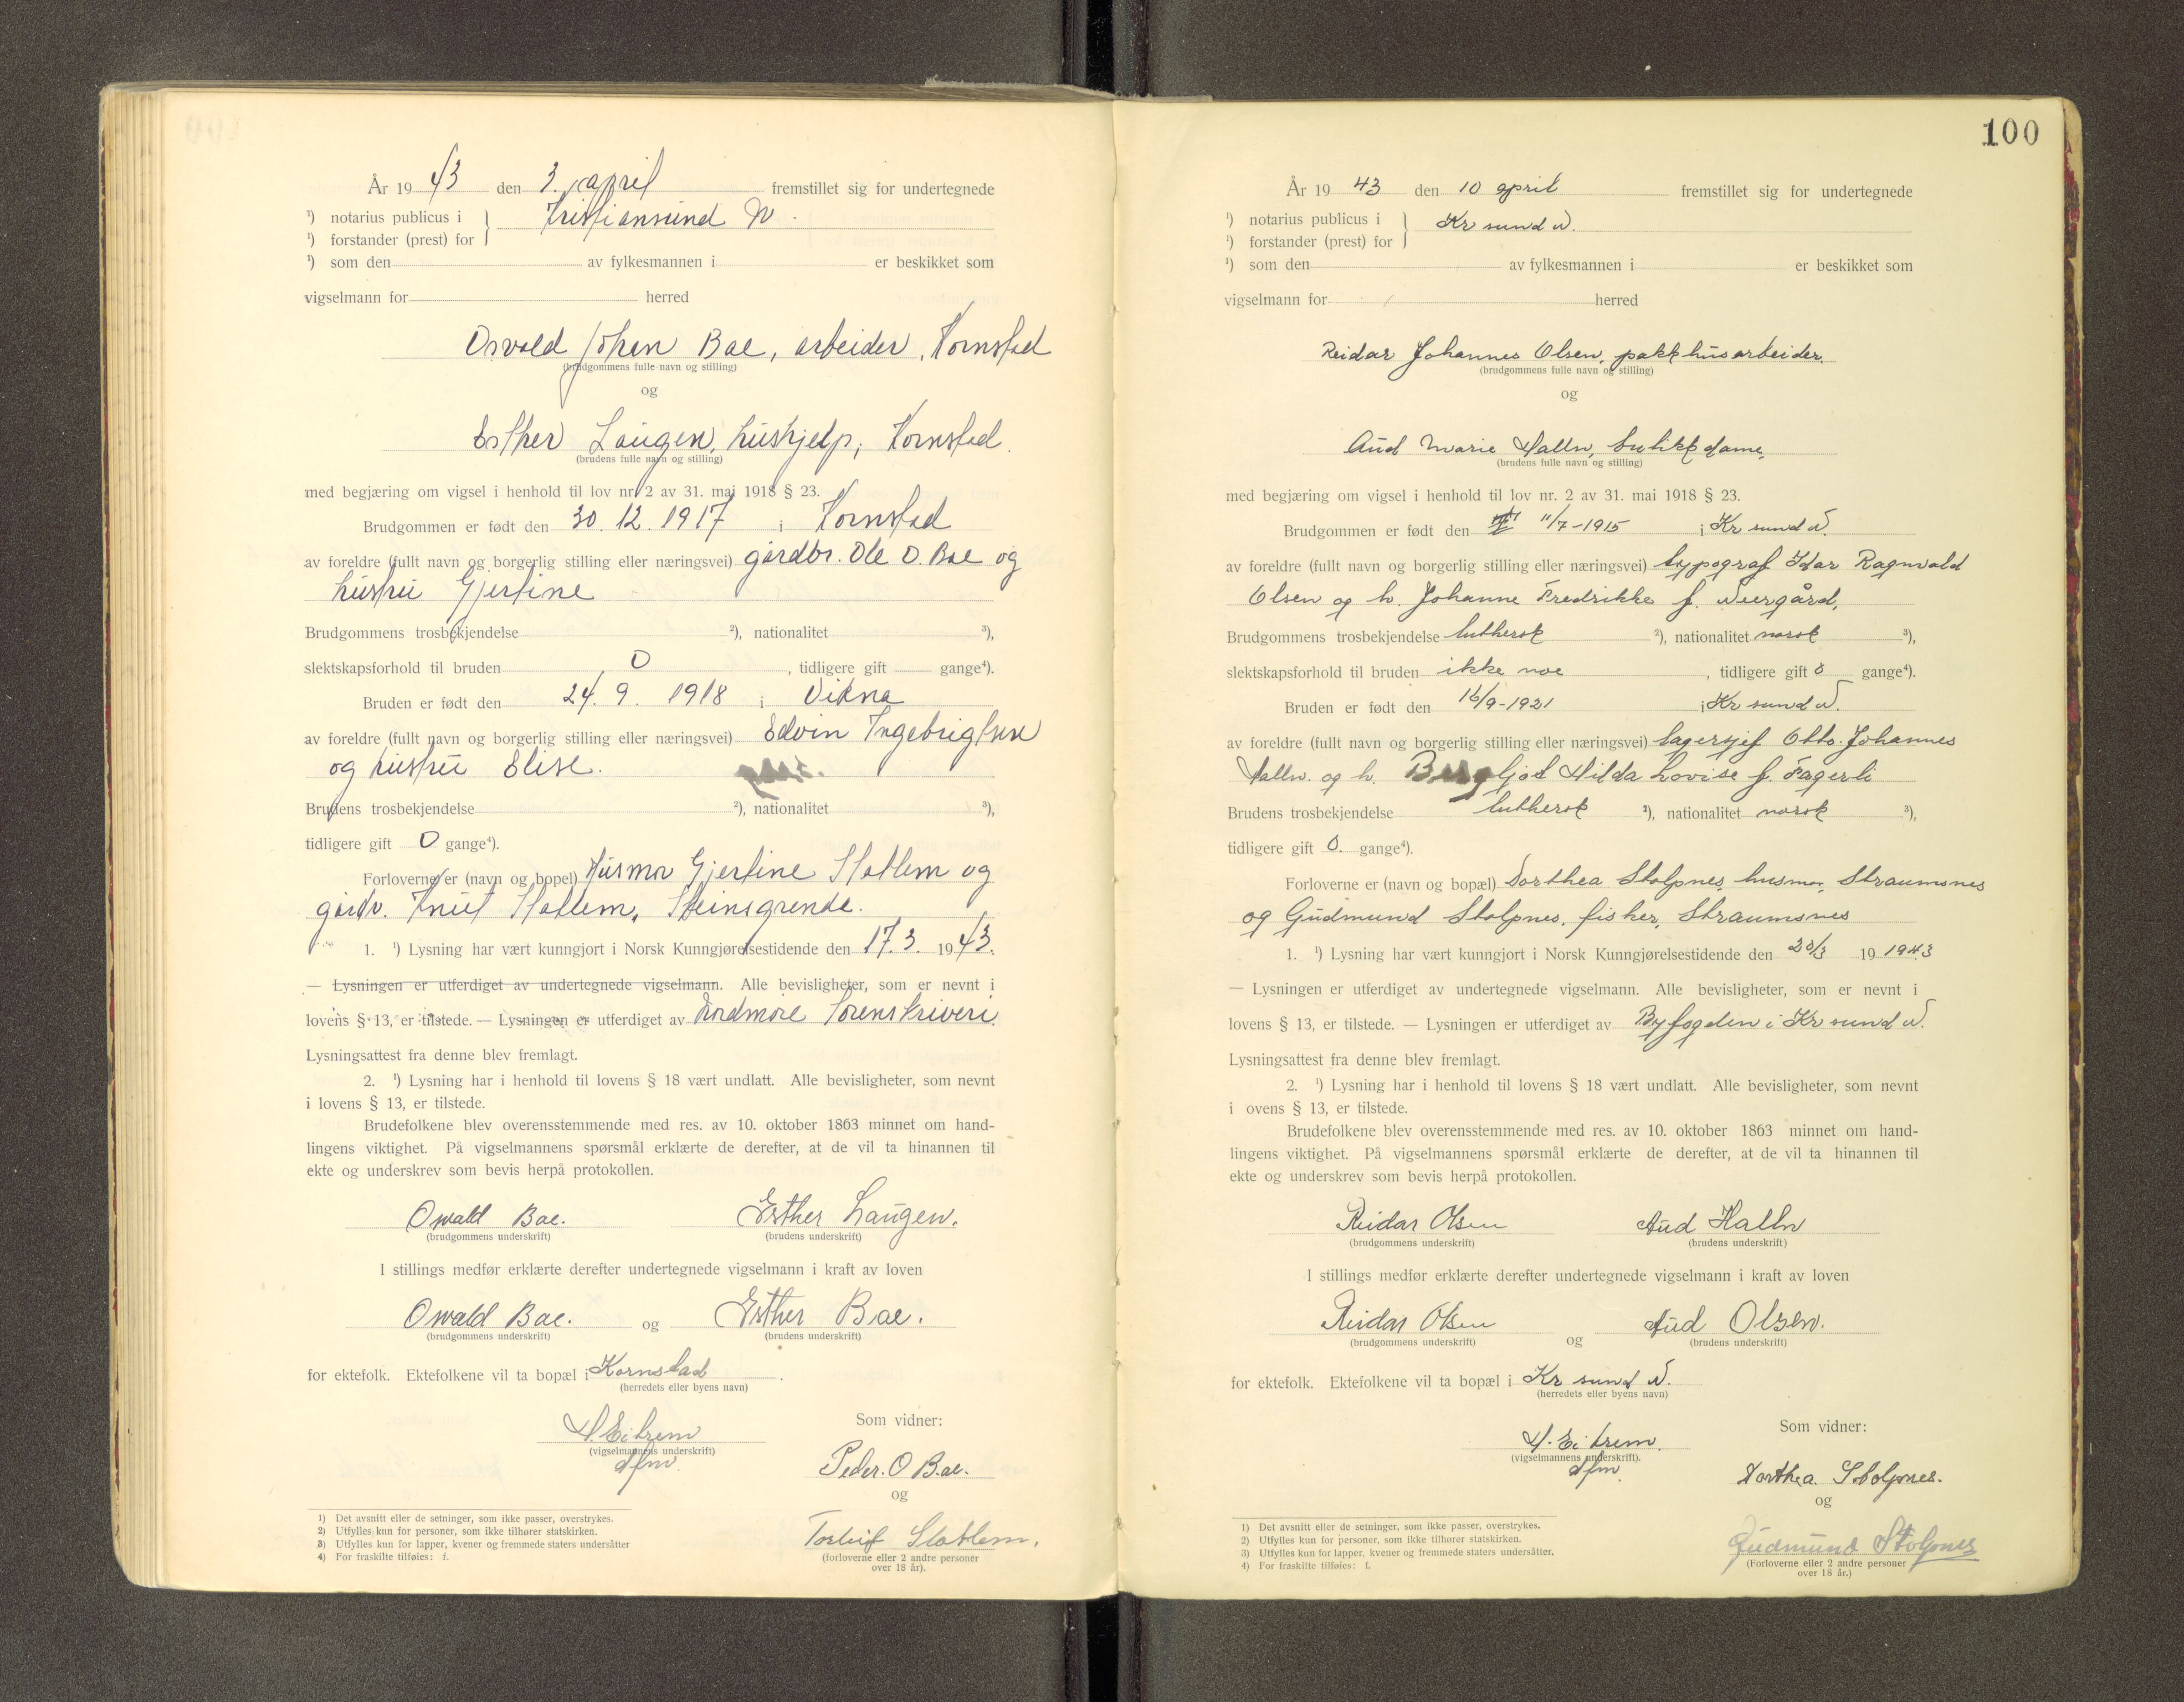 År 19 43 den 3. april fremstillet sig for undertegnede
¹) notarius publicus i Kristiansund N.
¹) forstander (prest) for
¹) som den av fylkesmannen i er beskikket som
vigselmann for herred
Osvald Johan Bae, arbeider, Kornstad
(brudgommens fulle navn og stilling)
og
Esther Laugen, hushjelp, Kornstad.
(brudens fulle navn og stilling)
med begjæring om vigsel i henhold til lov nr. 2 av 31. mai 1918 § 23.
Brudgommen er født den 30. 12. 1917 i Kornstad
av foreldre (fullt navn og borgerlig stilling eller næringsvei) gårdbr. Ole O. Bae og
hustru Gjertine
Brudgommens trosbekjendelse ²), nationalitet ³),
slektskapsforhold til bruden 0, tidligere gift gange⁴).
Bruden er født den 24. 9. 1918 i Vikna
av foreldre (fullt navn og borgerlig stilling eller næringsvei) Edvin Ingebrigtsen
og hustru Elise.
Brudens trosbekjendelse ²), nationalitet ³),
tidligere gift 0 gange⁴).
Forloverne er (navn og bopel) Husmor Gjertine Slatlem og
gårdbr. Knut Slatlem, Steinsgrende.
1. ¹) Lysning har vært kunngjort i Norsk Kunngjørelsestidende den 17. 3. 1943.
— Lysningen er utferdiget av undertegnede vigselmann. Alle bevisligheter, som er nevnt i
lovens § 13, er tilstede. — Lysningen er utferdiget av Nordmøre Sorenskriveri.
Lysningsattest fra denne blev fremlagt.
2. ¹) Lysning har i henhold til lovens § 18 vært undlatt. Alle bevisligheter, som nevnt
i lovens § 13, er tilstede.
Brudefolkene blev overensstemmende med res. av 10. oktober 1863 minnet om hand-
lingens viktighet. På vigselmannens spørsmål erklærte de derefter, at de vil ta hinannen til
ekte og underskrev som bevis herpå protokollen.
Oswald Bae. Esther Laugen.
(brudgommens underskrift) (brudens underskrift)
I stillings medfør erklærte derefter undertegnede vigselmann i kraft av loven
Oswald Bae. og Esther Bae.
(brudgommens underskrift) (brudens underskrift)
for ektefolk. Ektefolkene vil ta bopæl i Kornstad.
(herredets eller byens navn)
H. Eikrem Som vidner:
(vigselmannens underskrift)
dfm. Peder. O Bae.
og
Torleif Slatlem.
(forloverne eller 2 andre personer
over 18 år).
1) Det avsnitt eller de setninger, som ikke passer, overstrykes.
2) Utfylles kun for personer, som ikke tilhører statskirken.
3) Utfylles kun for lapper, kvener og fremmede staters undersåtter
4) For fraskilte tilføies: f.
100
År 19 43 den 10 april fremstillet sig for undertegnede
¹) notarius publicus i Kr sund N.
¹) forstander (prest) for
¹) som den av fylkesmannen i er beskikket som
vigselmann for herred
Reidar Johannes Olsen, pakkhusarbeider.
(brudgommens fulle navn og stilling)
og
Aud Marie Halln, butikkdame,
(brudens fulle navn og stilling)
med begjæring om vigsel i henhold til lov nr. 2 av 31. mai 1918 § 23.
Brudgommen er født den 11/7-1915 i Kr sund N.
av foreldre (fullt navn og borgerlig stilling eller næringsvei) typograf Idar Ragnvald
Olsen og h. Johanne Fredrikke f. Neergård,
Brudgommens trosbekjendelse luthersk ²), nationalitet norsk ³),
slektskapsforhold til bruden ikke noe, tidligere gift 0 gange⁴).
Bruden er født den 16/9-1921 i Kr sund N.
av foreldre (fullt navn og borgerlig stilling eller næringsvei) lagersjef Otto Johannes
Halln. og h. Bergljot Hilda Lovise f. Fagerli
Brudens trosbekjendelse luthersk ²), nationalitet norsk ³),
tidligere gift 0. gange⁴).
Forloverne er (navn og bopæl) Dorthea Stolpnes, husmor, Straumsnes
og Gudmund Stolpnes, fisker, Straumsnes
1. ¹) Lysning har vært kunngjort i Norsk Kunngjørelsestidende den 20/3 19 1943
— Lysningen er utferdiget av undertegnede vigselmann. Alle bevisligheter, som er nevnt i
lovens § 13, er tilstede. — Lysningen er utferdiget av Byfogden i Kr sund N.
Lysningsattest fra denne blev fremlagt.
2. ¹) Lysning har i henhold til lovens § 18 vært undlatt. Alle bevisligheter, som nevnt
i ovens § 13, er tilstede.
Brudefolkene blev overensstemmende med res. av 10. oktober 1863 minnet om hand-
lingens viktighet. På vigselmannens spørsmål erklærte de derefter, at de vil ta hinannen til
ekte og underskrev som bevis herpå protokollen.
Reidar Olsen Aud Halln
(brudgommens underskrift) (brudens underskrift)
I stillings medfør erklærte derefter undertegnede vigselmann i kraft av loven
Reidar Olsen og Aud Olsen.
(brudgommens underskrift) (brudens underskrift)
for ektefolk. Ektefolkene vil ta bopæl i Kr sund N.
(herredets eller byens navn)
H. Eikrem. Som vidner:
(vigselmannens underskrift).
dfm. Dorthea Stolpnes.
og
Gudmund Stolpnes
(Forloverne eller 2 andre personer
over 18 år.)
1) Det avsnitt eller de setninger, som ikke passer, overstrykes.
2) Utfylles kun for personer, som ikke tilhører statskirken.
3) Utfylles kun for lapper, kvener og fremmede staters undersåtter.
4) For fraskilte tilføies: f.